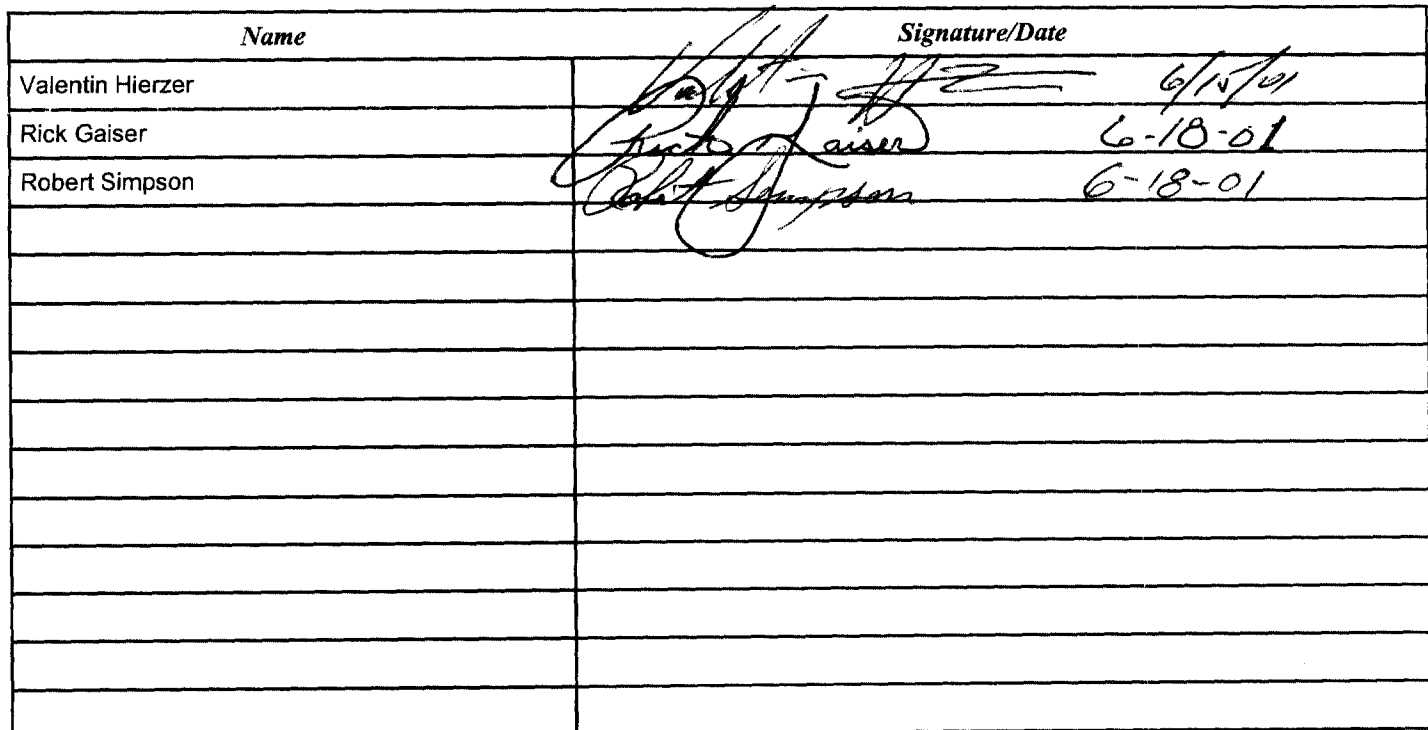 Name Signature/Date
Valentin Hierzer Valentin Hierzer 6/15/01
Rick Gaiser Rick Gaiser 6-18-01
Robert Simpson Robert Simpson 6-18-01